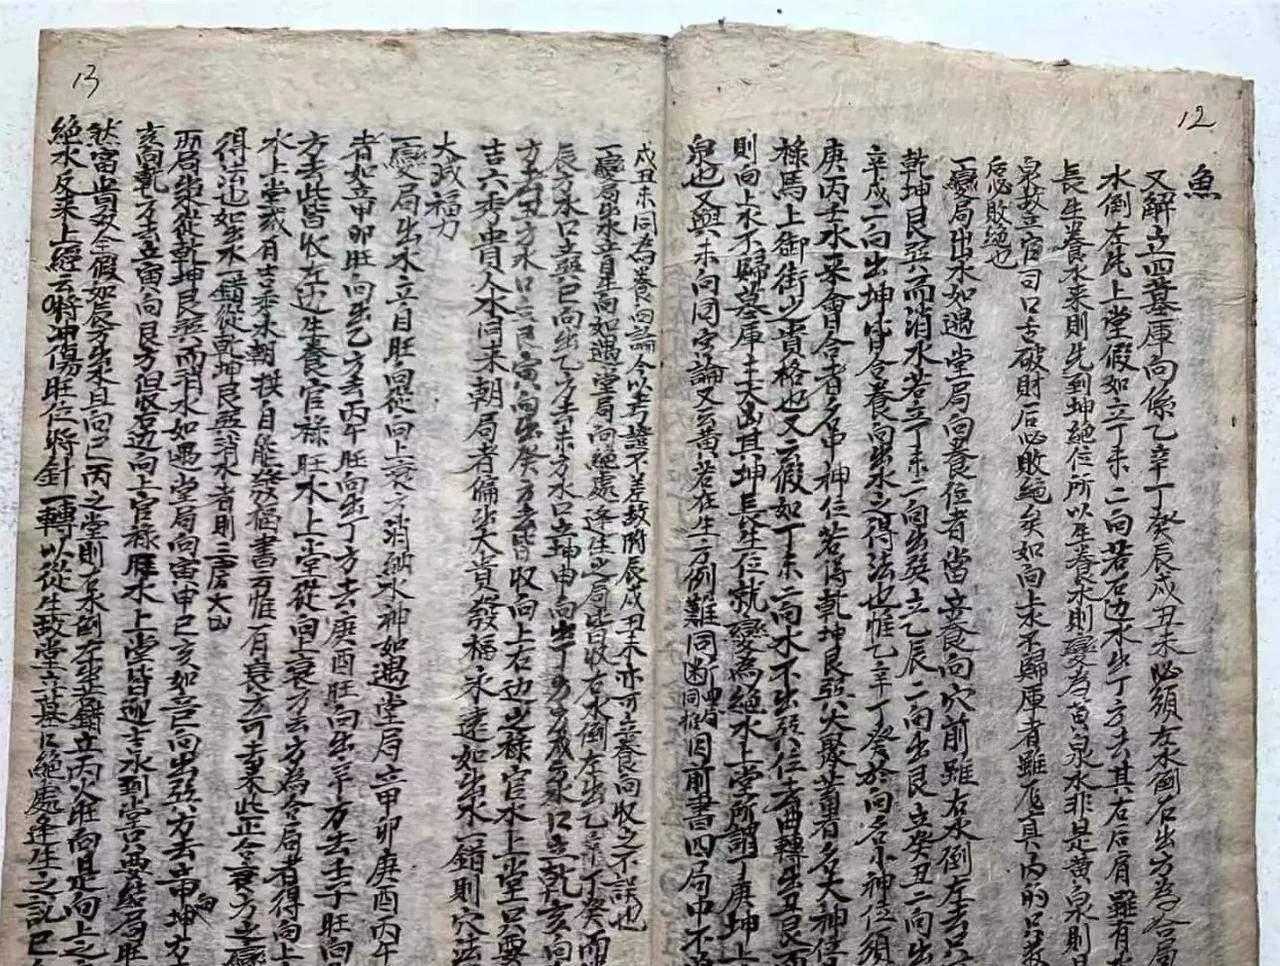 12
魚
又解立四墓庫向係乙辛丁癸辰戌丑未必須左水倒右出方為合局
水倒左先上堂假如立丁未二向若右边水出丁方去其右后肩雖有
長生养水来則先到坤絕位所以生养水則變為黄泉水非是黄泉則
泉故主官司口舌破財后必敗絕矣如向上水不歸庫者雖
后必敗絕也
一變局出水如遇堂局向養位者當立養向穴前雖右水倒左
乾坤艮巽而消水若立丁未二向出巽立乙辰二向出艮立癸丑二向出
辛戌二向出坤皆合養向出水之得法也惟乙辛丁癸於向名小神位須
庚丙壬水来會合者名中神位若得乾坤艮巽六聚蓄者名大神位
祿馬上御街之貴格也又云假如丁未二向水不出巽位去者曲轉出丑艮
則向上水不歸墓庫主大凶其坤長生位就變為絕水上堂所謂丁庚坤上
泉也又與未向同字論又云黄若在生方例難同断同推因前書四局中不
戌丑未同為養向論今以考證不差故附辰戌丑未亦可立養向收之不誤也
13
一變局出水立自生向如遇堂局向絕處逢生之局皆收右水倒左出乙辛丁癸而
辰方水口立巽巳向出乙方去未方水口立坤申向出丁方去戌方水口立乾亥向
方去丑方水口立艮寅向出癸方去皆收向上右边之祿官水上堂只要
吉六秀貴人水同来朝局者偏出大貴發福永遠如出水一錯則穴法
大減福力
一變局出水立自旺向從向上衰方消納水神如遇堂局立甲卯庚酉丙午
者如立甲卯旺向出乙方去丙午旺向出丁方去庚酉旺向出辛方去壬子旺向
方去此皆收左边生養官祿旺水上堂從向上衰方去方為合局者得向上
水上堂或有吉秀水朝拱自能發福書云惟有衰方可去来此正合衰方之變
得法也如出水一錯從乾坤艮巽消水者則立居大凶
丙局出從乾坤艮巽而消水如遇堂局向寅申巳亥如立巳向出巽方去申向坤方
亥向乾方去立寅向艮方但收右边向上官祿旺水上堂皆迎吉水到堂只要結局旺
然富貴双全假如辰方出水且向巳丙之堂則右水倒左出若錯立丙火旺向是向上之
絕水反来上經云時師傷旺位將針一轉以從生故堂立墓